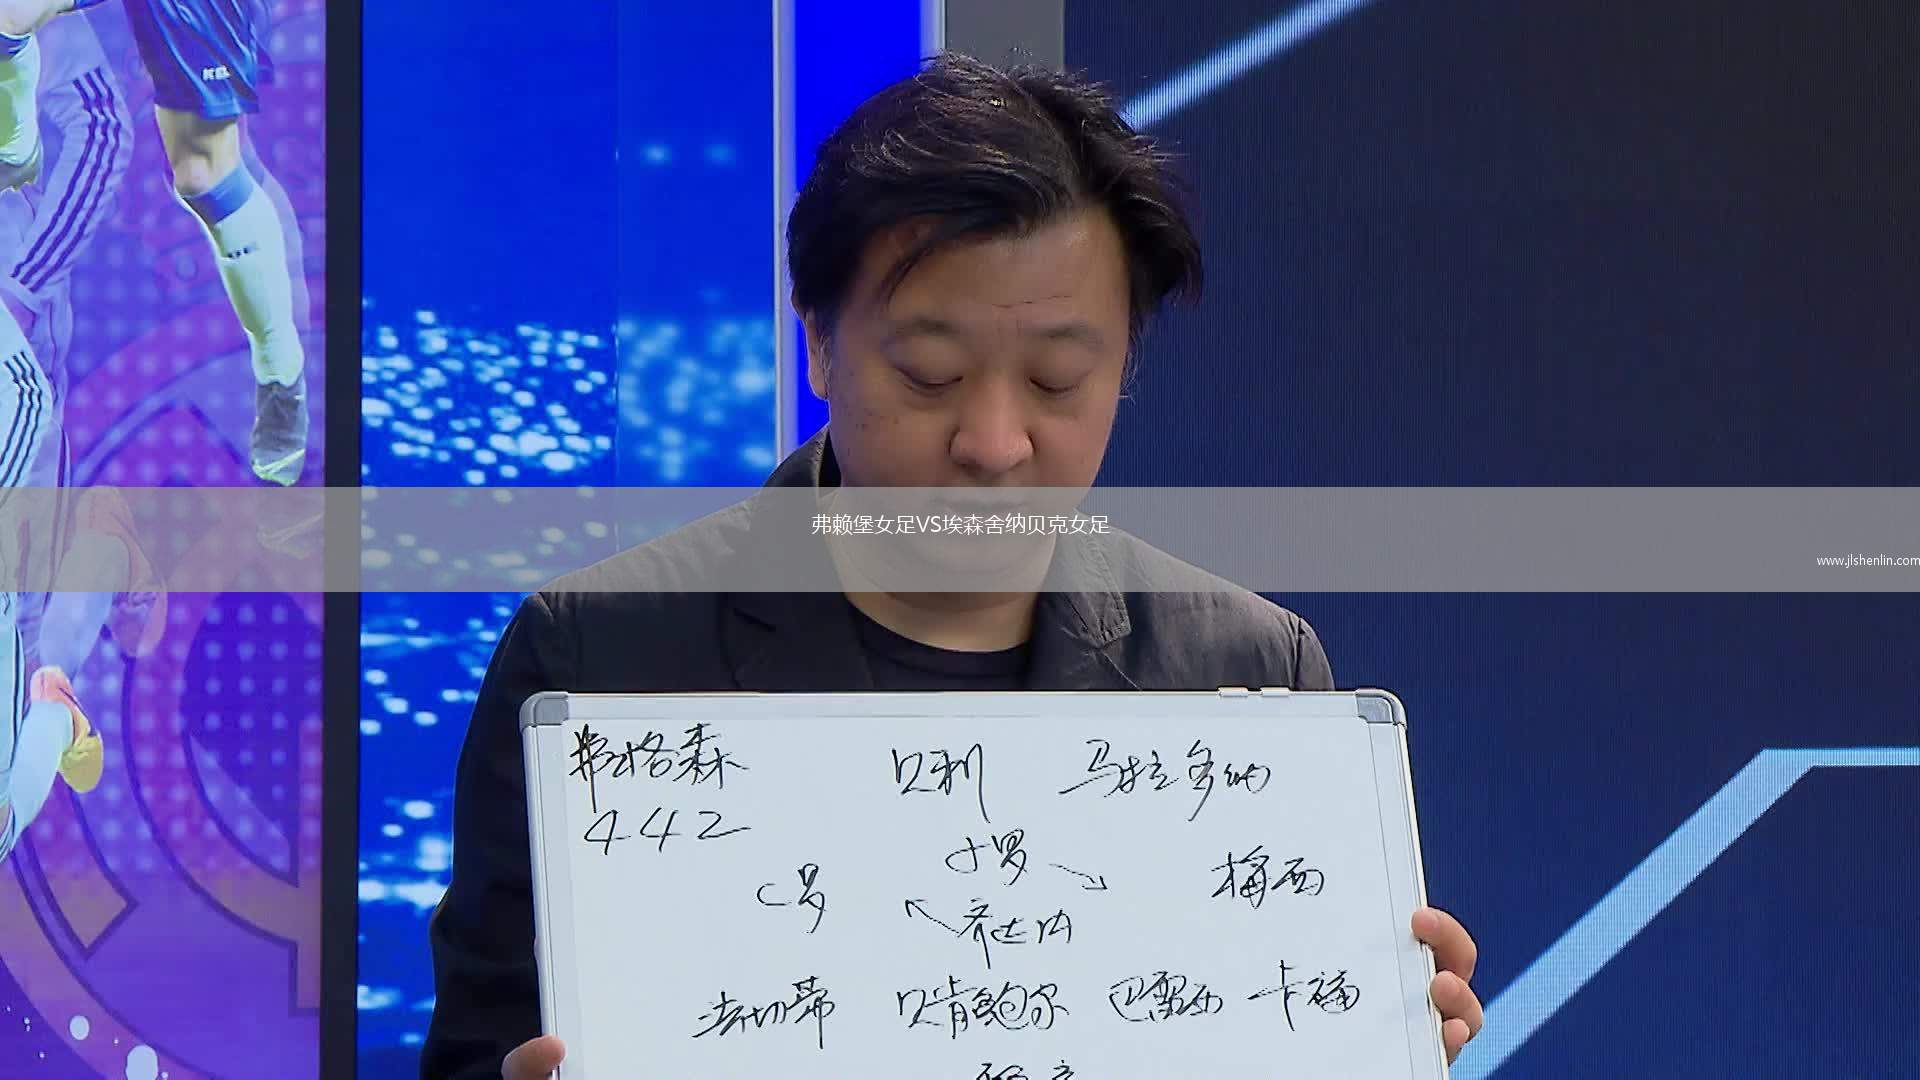 弗赖堡女足VS埃森舍纳贝克女足
www.jlshenlin.com
弗格森 贝利 马拉多纳
442
小罗
C罗 梅西
齐达内
法切蒂 贝肯鲍尔 巴雷西 卡福